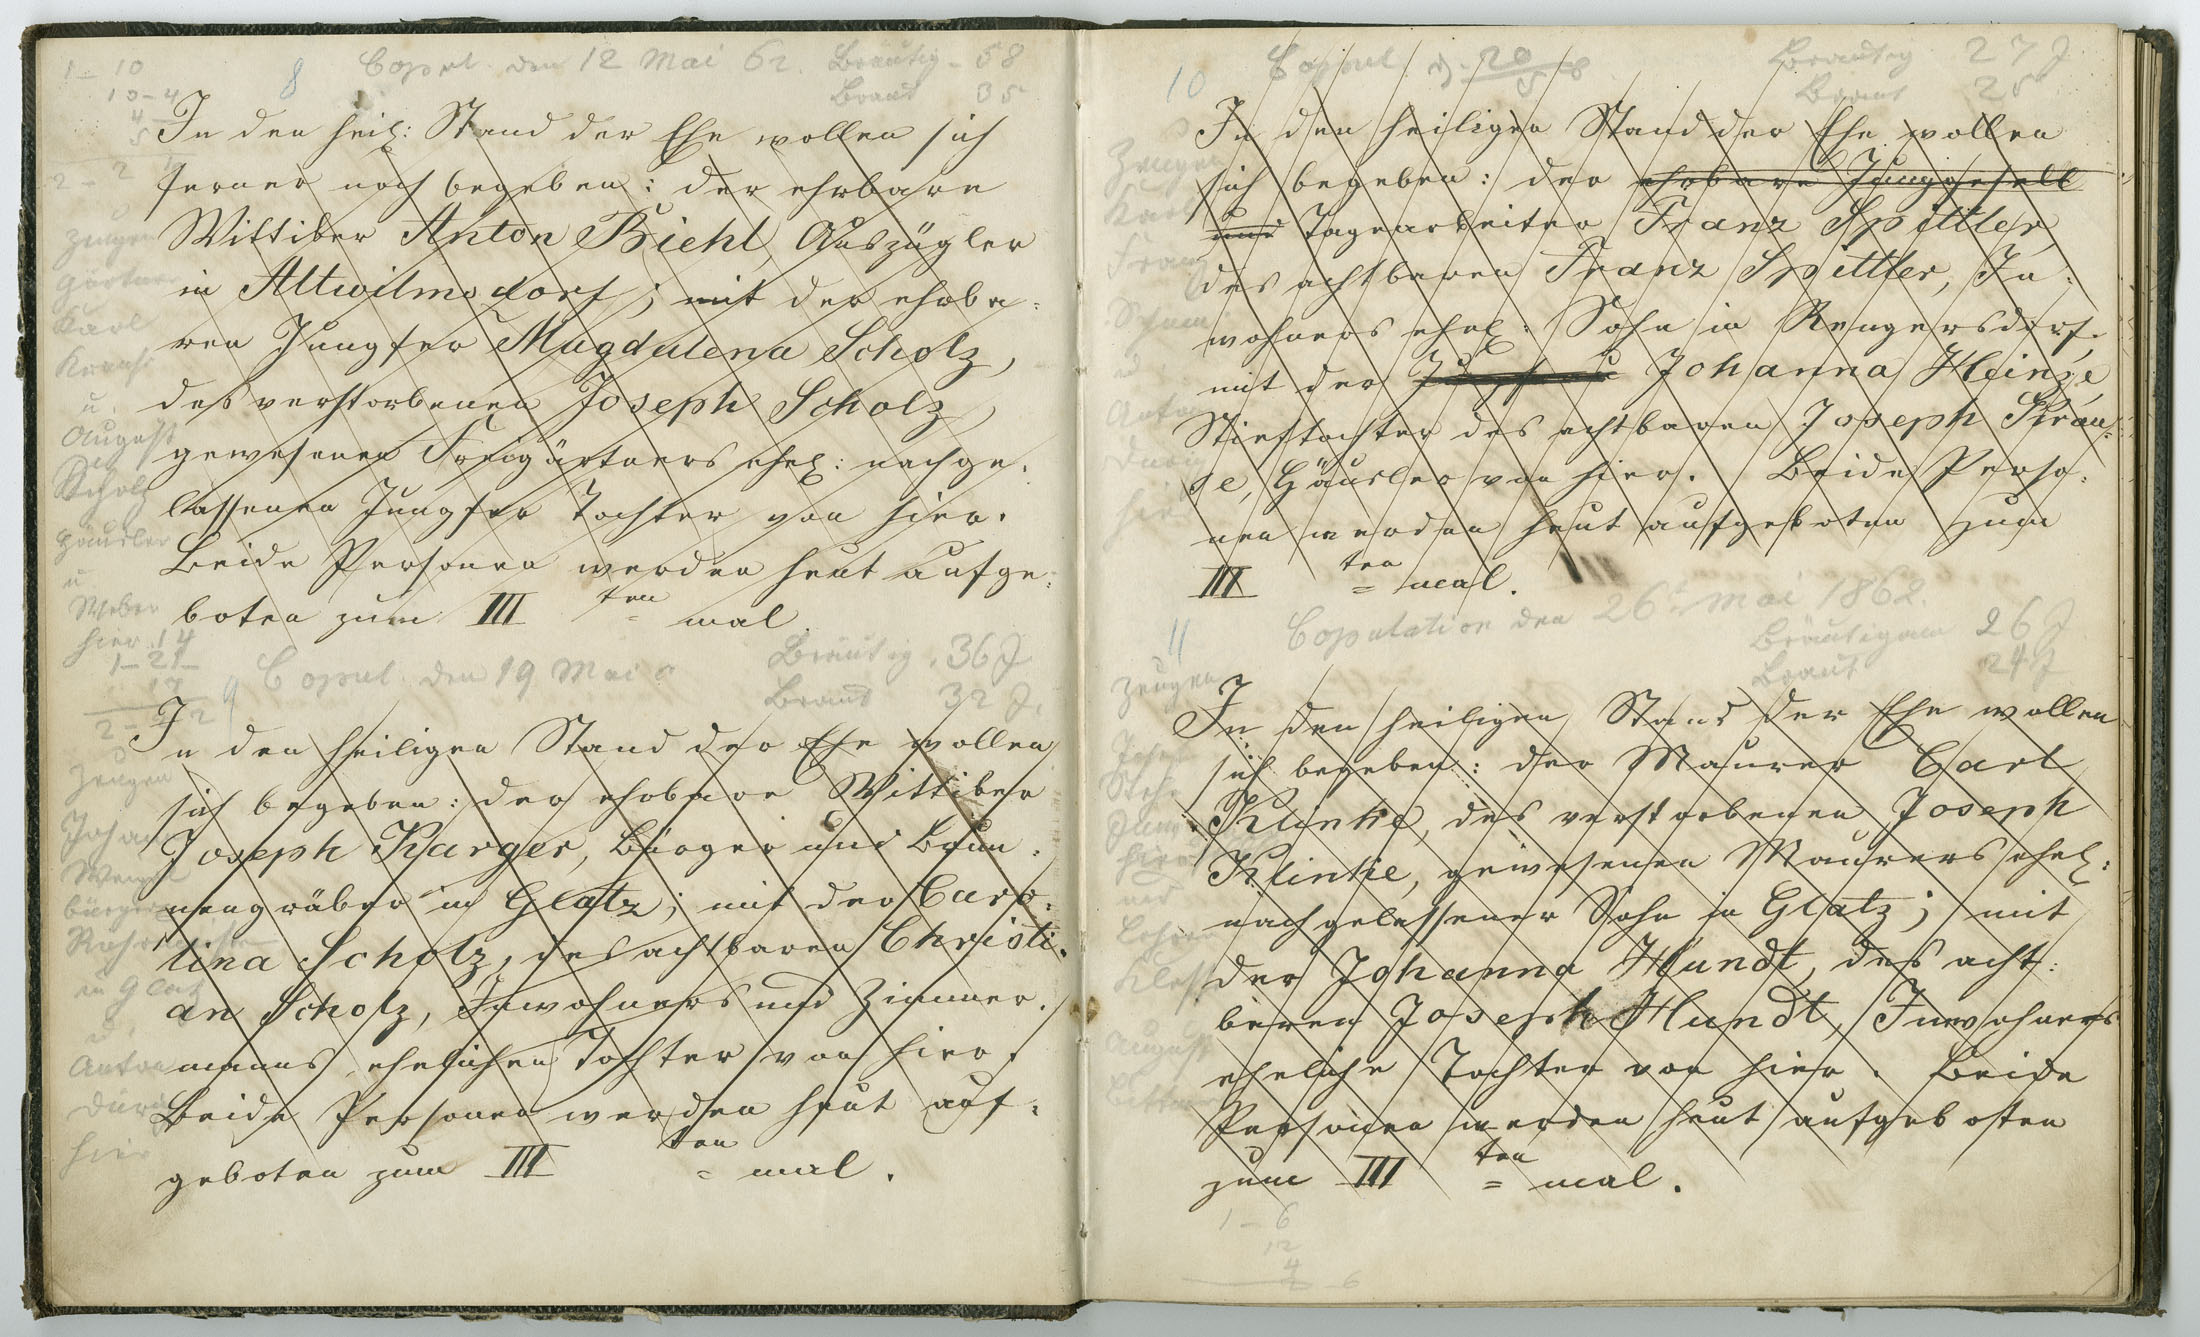 8 Copul. den 12 Mai 62. Bräutig - 58
Braut 35
1 - 10
10 - 4
In den heil: Stand der Ehe wollen sich
ferner noch begeben: der ehrbare
Wittiber Anton Biehl, Auszügler
in Altwilmsdorf; mit der ehrba=
ren Jungfer Magdalena Scholz,
des verstorbenen Joseph Scholz,
gewesenen Freigärtners ehel: nachge=
lassenen Jungfer Tochter von hier.
Beide Personen werden heut aufge=
boten zum III ten mal.
Zeugen
Gärtner
Karl
Krause
u.
August
Scholz
Häusler
u
Weber
hier
9 Copul. den 19 Mai
Bräutig. 36 J
Braut 32 J.
In den heiligen Stand der Ehe wollen
sich begeben: der ehrbare Wittiber
Joseph Karger, Bürger und Brun=
nengräber in Glatz; mit der Caro=
lina Scholz, des achtbaren Christi=
an Scholz, Inwohners und Zimmer=
manns ehelichen Tochter von hier.
Beide Personen werden heut auf=
geboten zum III ten mal.
Zeugen
Johann
Bürger
in Glatz
u.
Anton
hier
10 Copul. d. 20/5
Bräutig 27 J
Braut 25
In den heiligen Stand der Ehe wollen
sich begeben: der ehrbare Junggesell
und Tagearbeiter Franz Spittler,
des achtbaren Franz Spittler, In=
wohners ehel: Sohn in Rengersdorf.
mit der Johanna Heinze
Stieftochter des achtbaren Joseph Krau=
se, Häusler von hier. Beide Perso=
nen werden heut aufgeboten zum
III ten mal.
Zeugen
Karl
Franz
Anton
11 Copulation den 26t Mai 1862.
Bräutigam 26 J
Braut 24 J
In den heiligen Stand der Ehe wollen
sich begeben: der Maurer Carl
Klinke, des verstorbenen Joseph
Klinke, gewesenen Maurers ehel:
nachgelassener Sohn in Glatz; mit
der Johanna Hundt, des acht=
baren Joseph Hundt, Inwohners
eheliche Tochter von hier. Beide
Personen werden heut aufgeboten
zum III ten mal.
Zeugen
hier
und
August
1 - 6
12
4